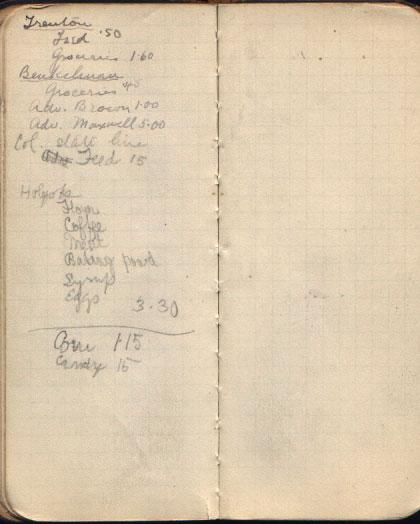 Trenton
Feed .50
Groceries 1.60
Benkelman
Groceries 45
Adv. Brown 1.00
Adv. Maxwell 5.00
Col. state line
Feed 15
Holyoke
Flour
Coffee
Meat
Baking powd
Syrup
Eggs 3.30
Corn 1.15
Candy 15